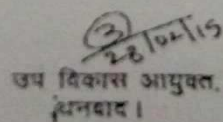 3
28/02/15
उप विकास आयुक्त,
धनबाद।